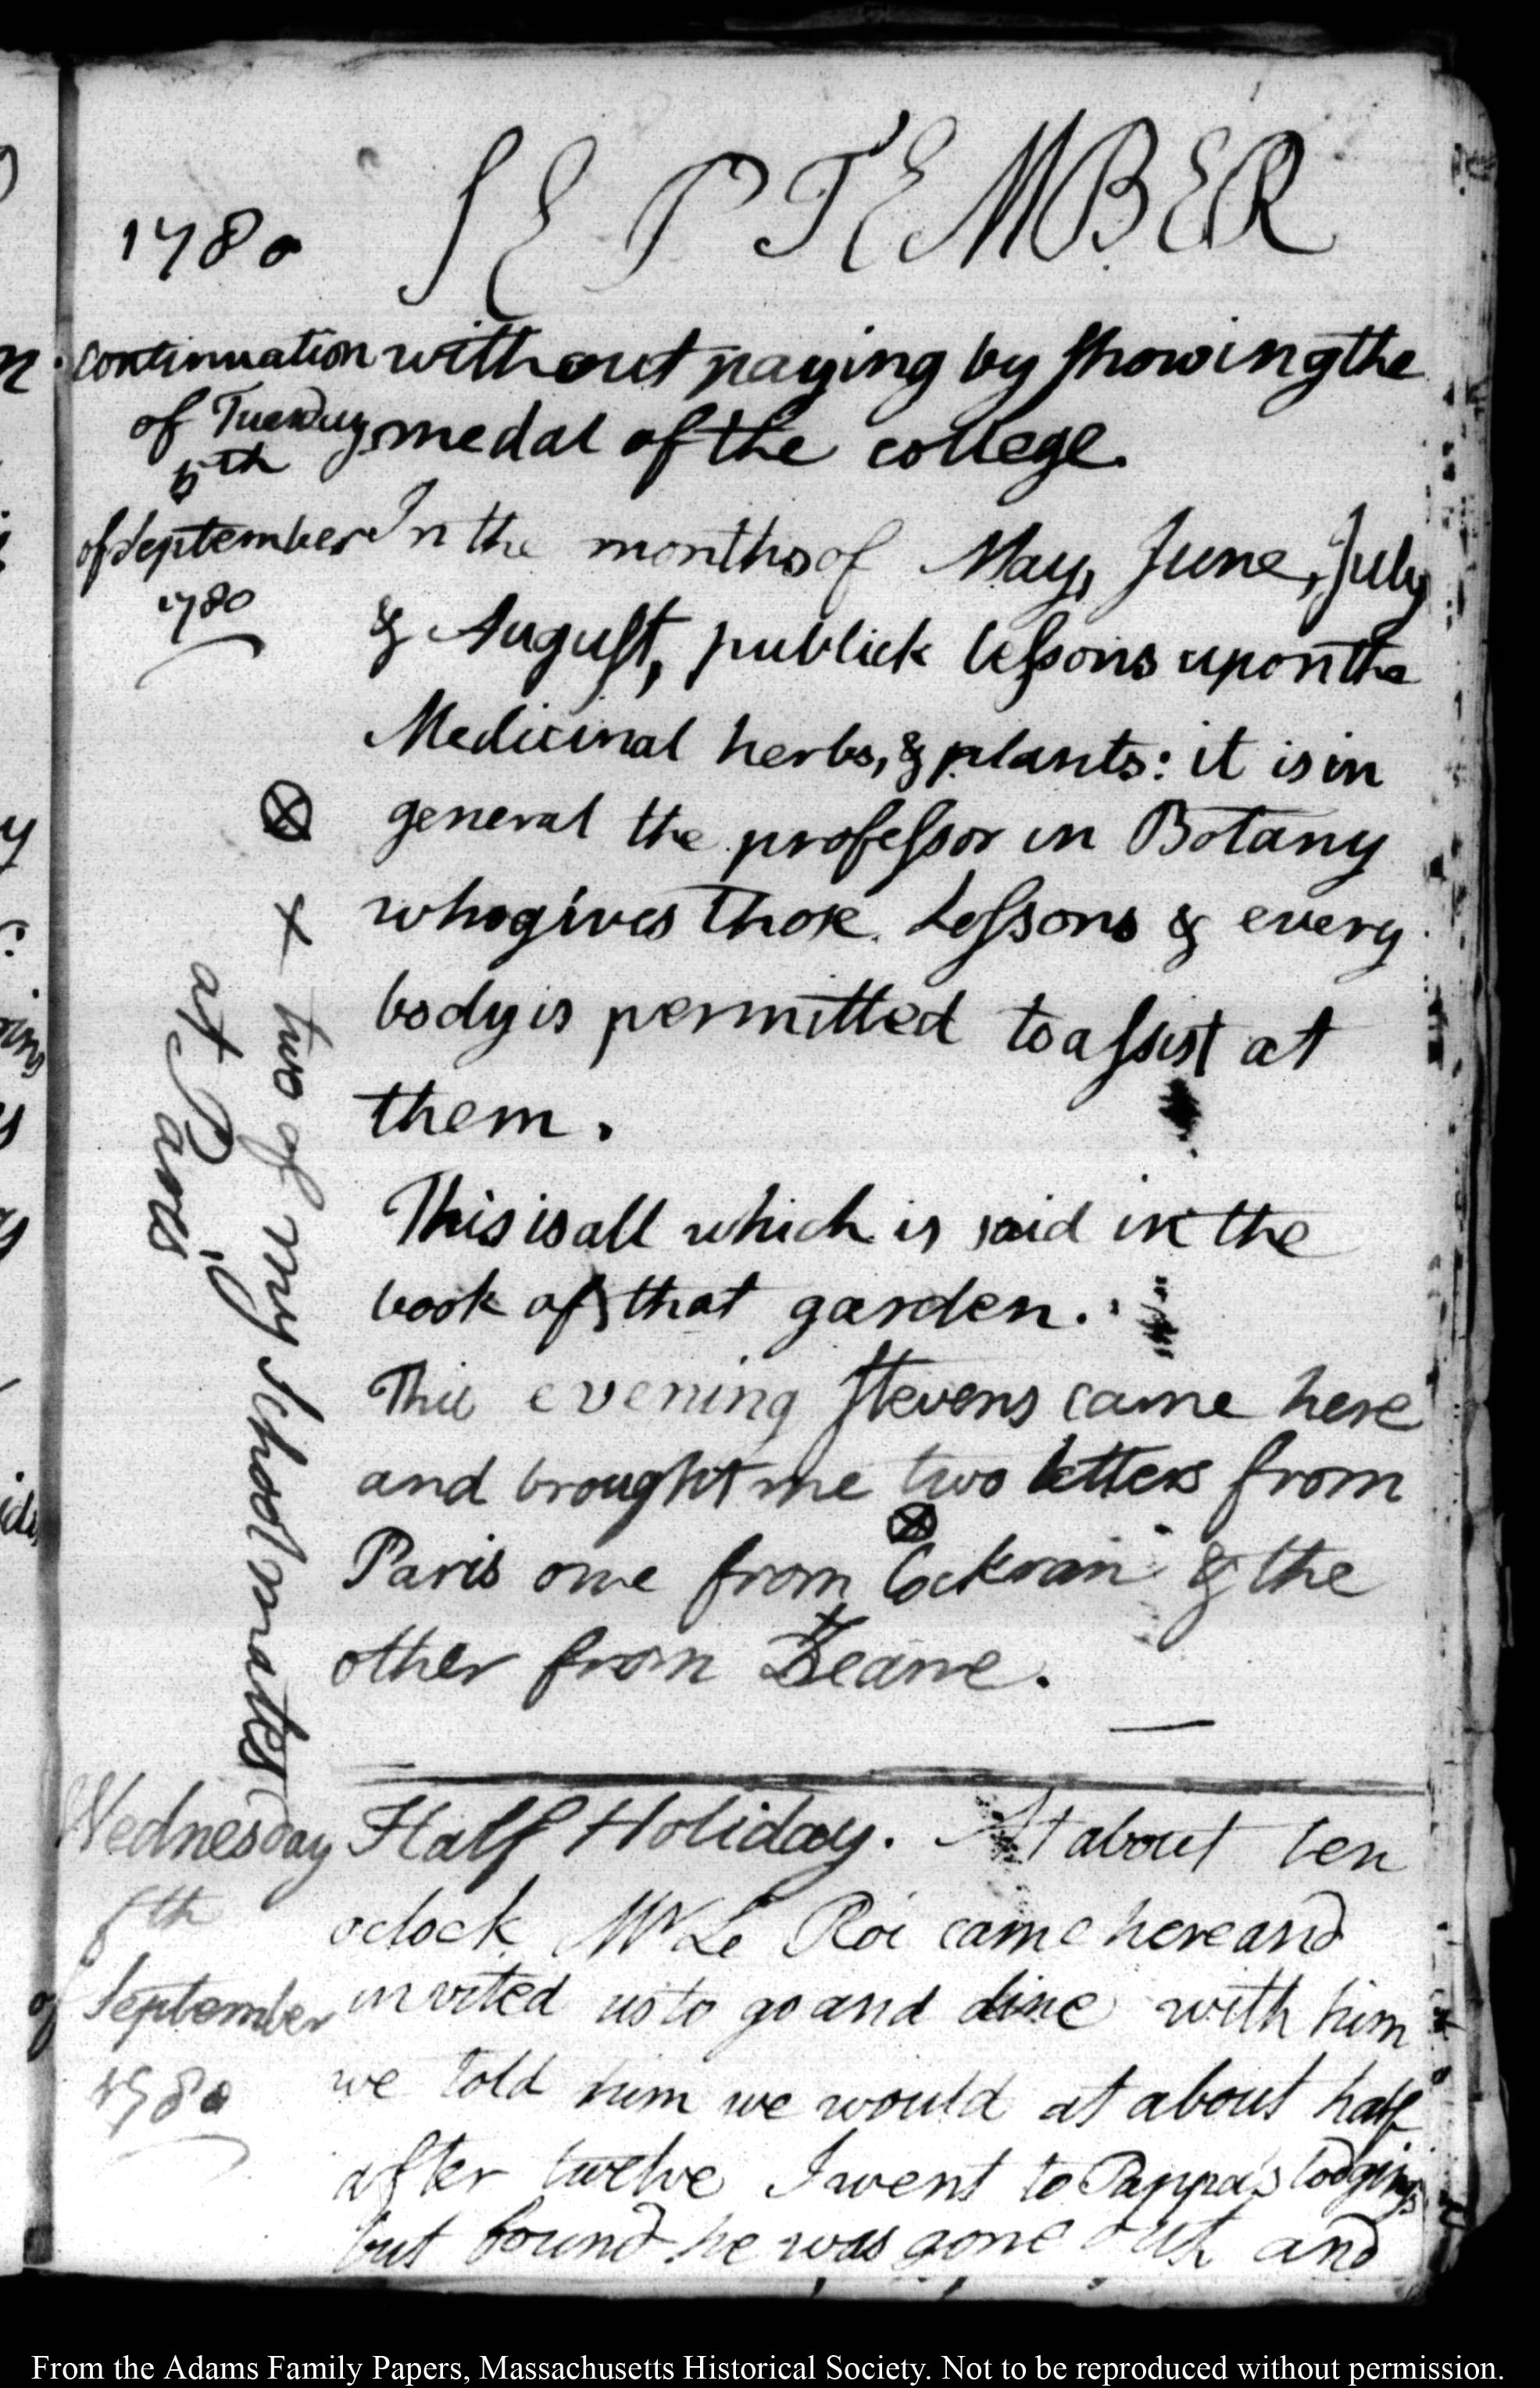 1780 SEPTEMBER
continuation
of Tuesday
5th
of September
1780
without paying by showing the
medal of the college.
In the months of May, June, July
& August, publick lessons upon the
Medicinal herbs, & plants: it is in
general the professor in Botany
who gives those Lessons & every
body is permitted to assist at
them.
This is all which is said in the
book of that garden.
This evening Stevens came here
and brought me two letters from
⊗
Paris one from Cockran & the
other from Deane.
⊗
× two of my school mates
at Paris
Wednesday
6th
of September
1780
Half Holiday. At about ten
oclock Mr Le Roi came here and
invited us to go and dine with him
we told him we would at about half
after twelve I went to Pappa's lodgings
but found he was gone out and
From the Adams Family Papers, Massachusetts Historical Society. Not to be reproduced without permission.